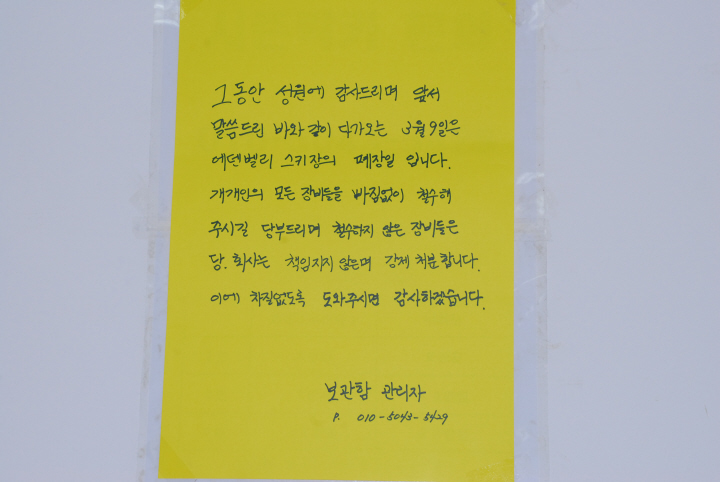 그동안 성원에 감사드리며 앞서
말씀드린 바와 같이 다가오는 3월 9일은
에덴밸리 스키장의 폐장일 입니다.
개개인의 모든 장비들을 빠짐없이 철수해
주시길 당부드리며 철수하지 않은 장비들은
당.회사는 책임지지 않으며 강제 처분합니다.
이에 차질없도록 도와주시면 감사하겠습니다.
보관함 관리자
P. 010-5043-5429